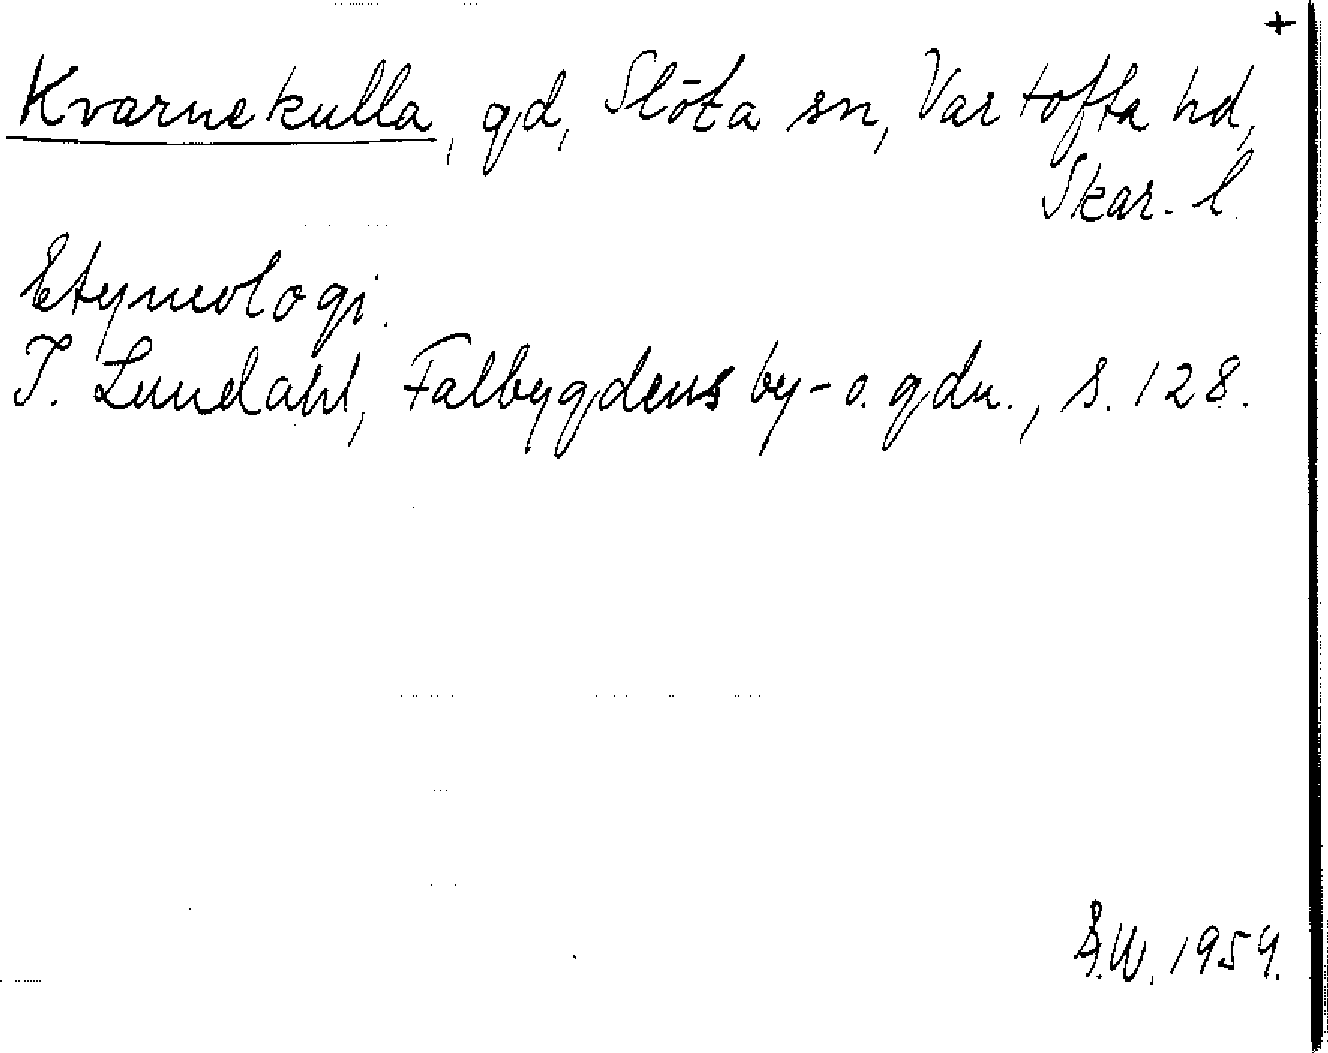 +
Kvarnekulla, gd, Slöta sn, Vartofta hd,
Skar. l.
Etymologi.
I. Lundahl, Falbygdens by- o. gdn., s. 128.
Å.W. 1954.